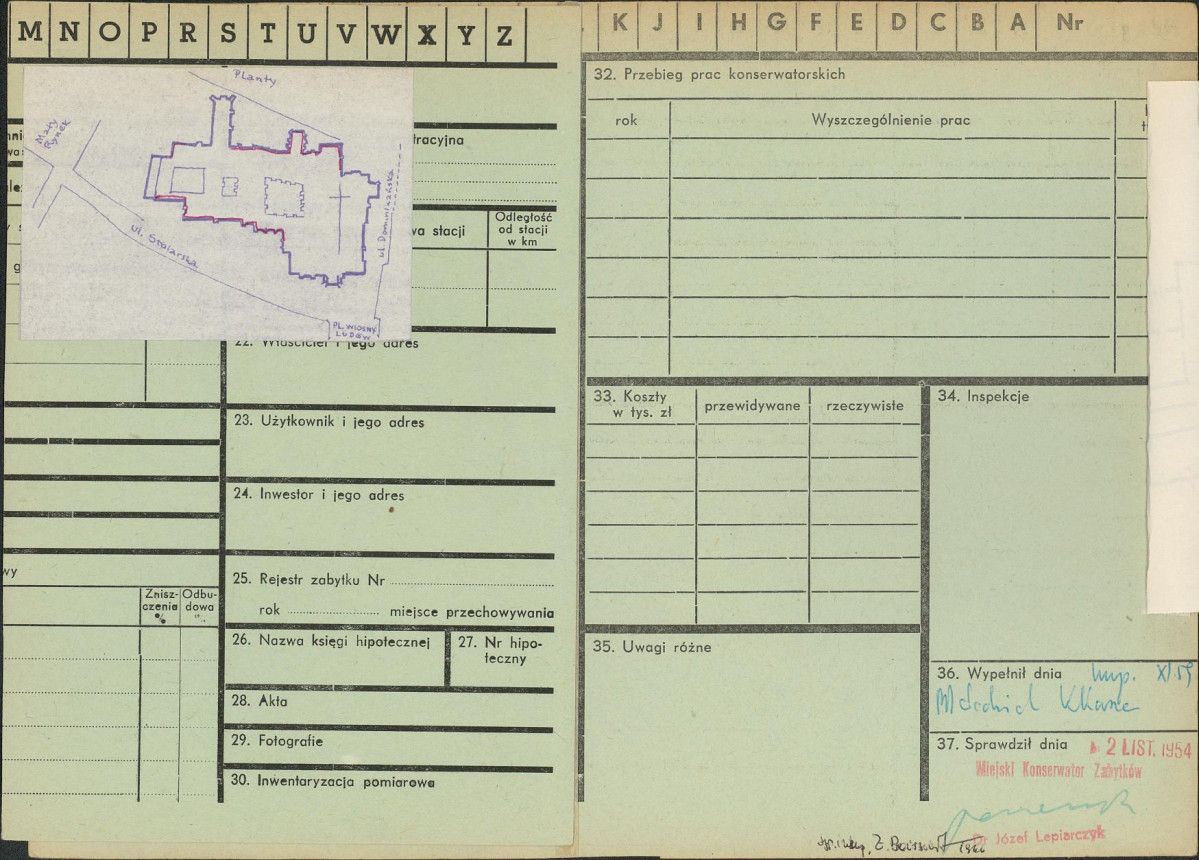 M N O P R S T U V W X Y Z
K J I H G F E D C B A Nr
Planty
Mały
Rynek
ul. Stolarska
ul. Dominikańska
PL. WIOSNY
LUDÓW
racyjna
wa stacji
Odległość
od stacji
w km
22. Właściciel i jego adres
23. Użytkownik i jego adres
24. Inwestor i jego adres
25. Rejestr zabytku Nr
rok miejsce przechowywania
wy
Znisz-
czenia
%
Odbu-
dowa
%
26. Nazwa księgi hipotecznej
27. Nr hipo-
teczny
28. Akta
29. Fotografie
30. Inwentaryzacja pomiarowa
32. Przebieg prac konserwatorskich
rok Wyszczególnienie prac
33. Koszty
w tys. zł
przewidywane rzeczywiste
34. Inspekcje
35. Uwagi różne
36. Wypełnił dnia
37. Sprawdził dnia 2 LIST. 1954
Miejski Konserwator Zabytków
Dr Józef Lepiarczyk